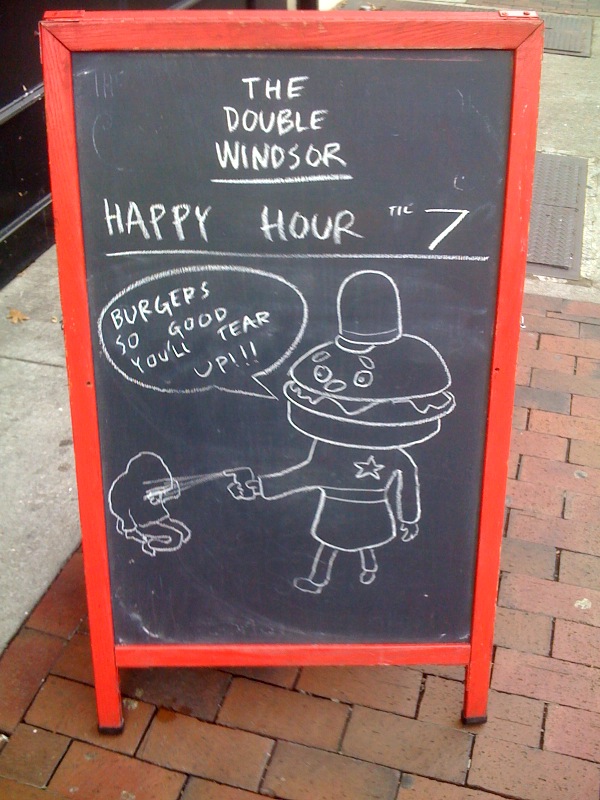 THE
DOUBLE
WINDSOR
HAPPY HOUR TIL 7
BURGERS
SO GOOD
YOU'LL TEAR
UP!!!